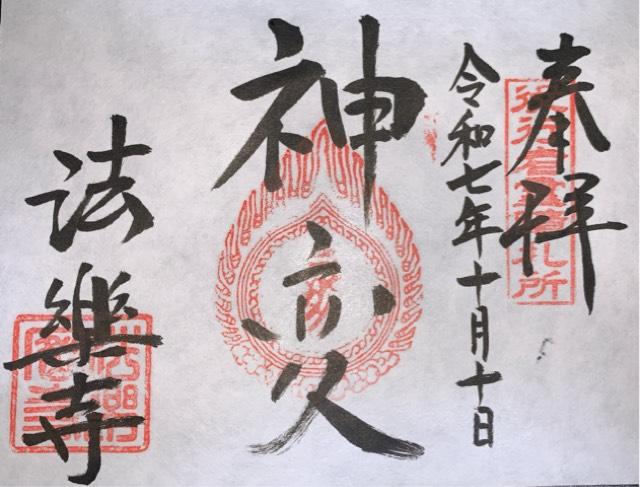 奉拝
令和七年十月十日
神変
法樂寺